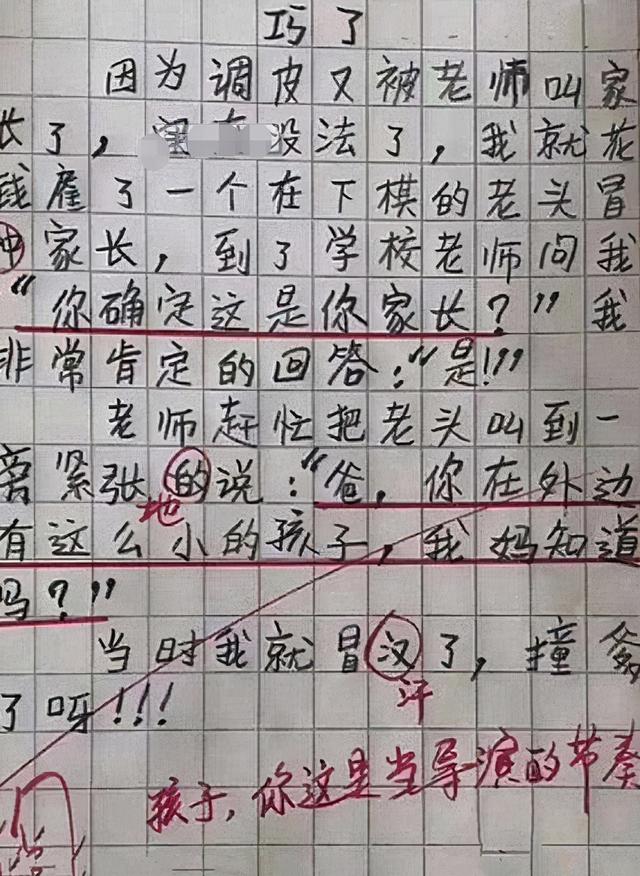 巧了
因为调皮又被老师叫家
长了，没法了，我就花
钱雇了一个在下棋的老头冒
冲家长，到了学校老师问我
“你确定这是你家长？”我
非常肯定的回答：“是!”
老师赶忙把老头叫到一
旁紧张的说：“爸，你在外边
地
有这么小的孩子，我妈知道
吗？”
当时我就冒汉了，撞爹
汗
了呀!!!
孩子，你这是当导演的节奏